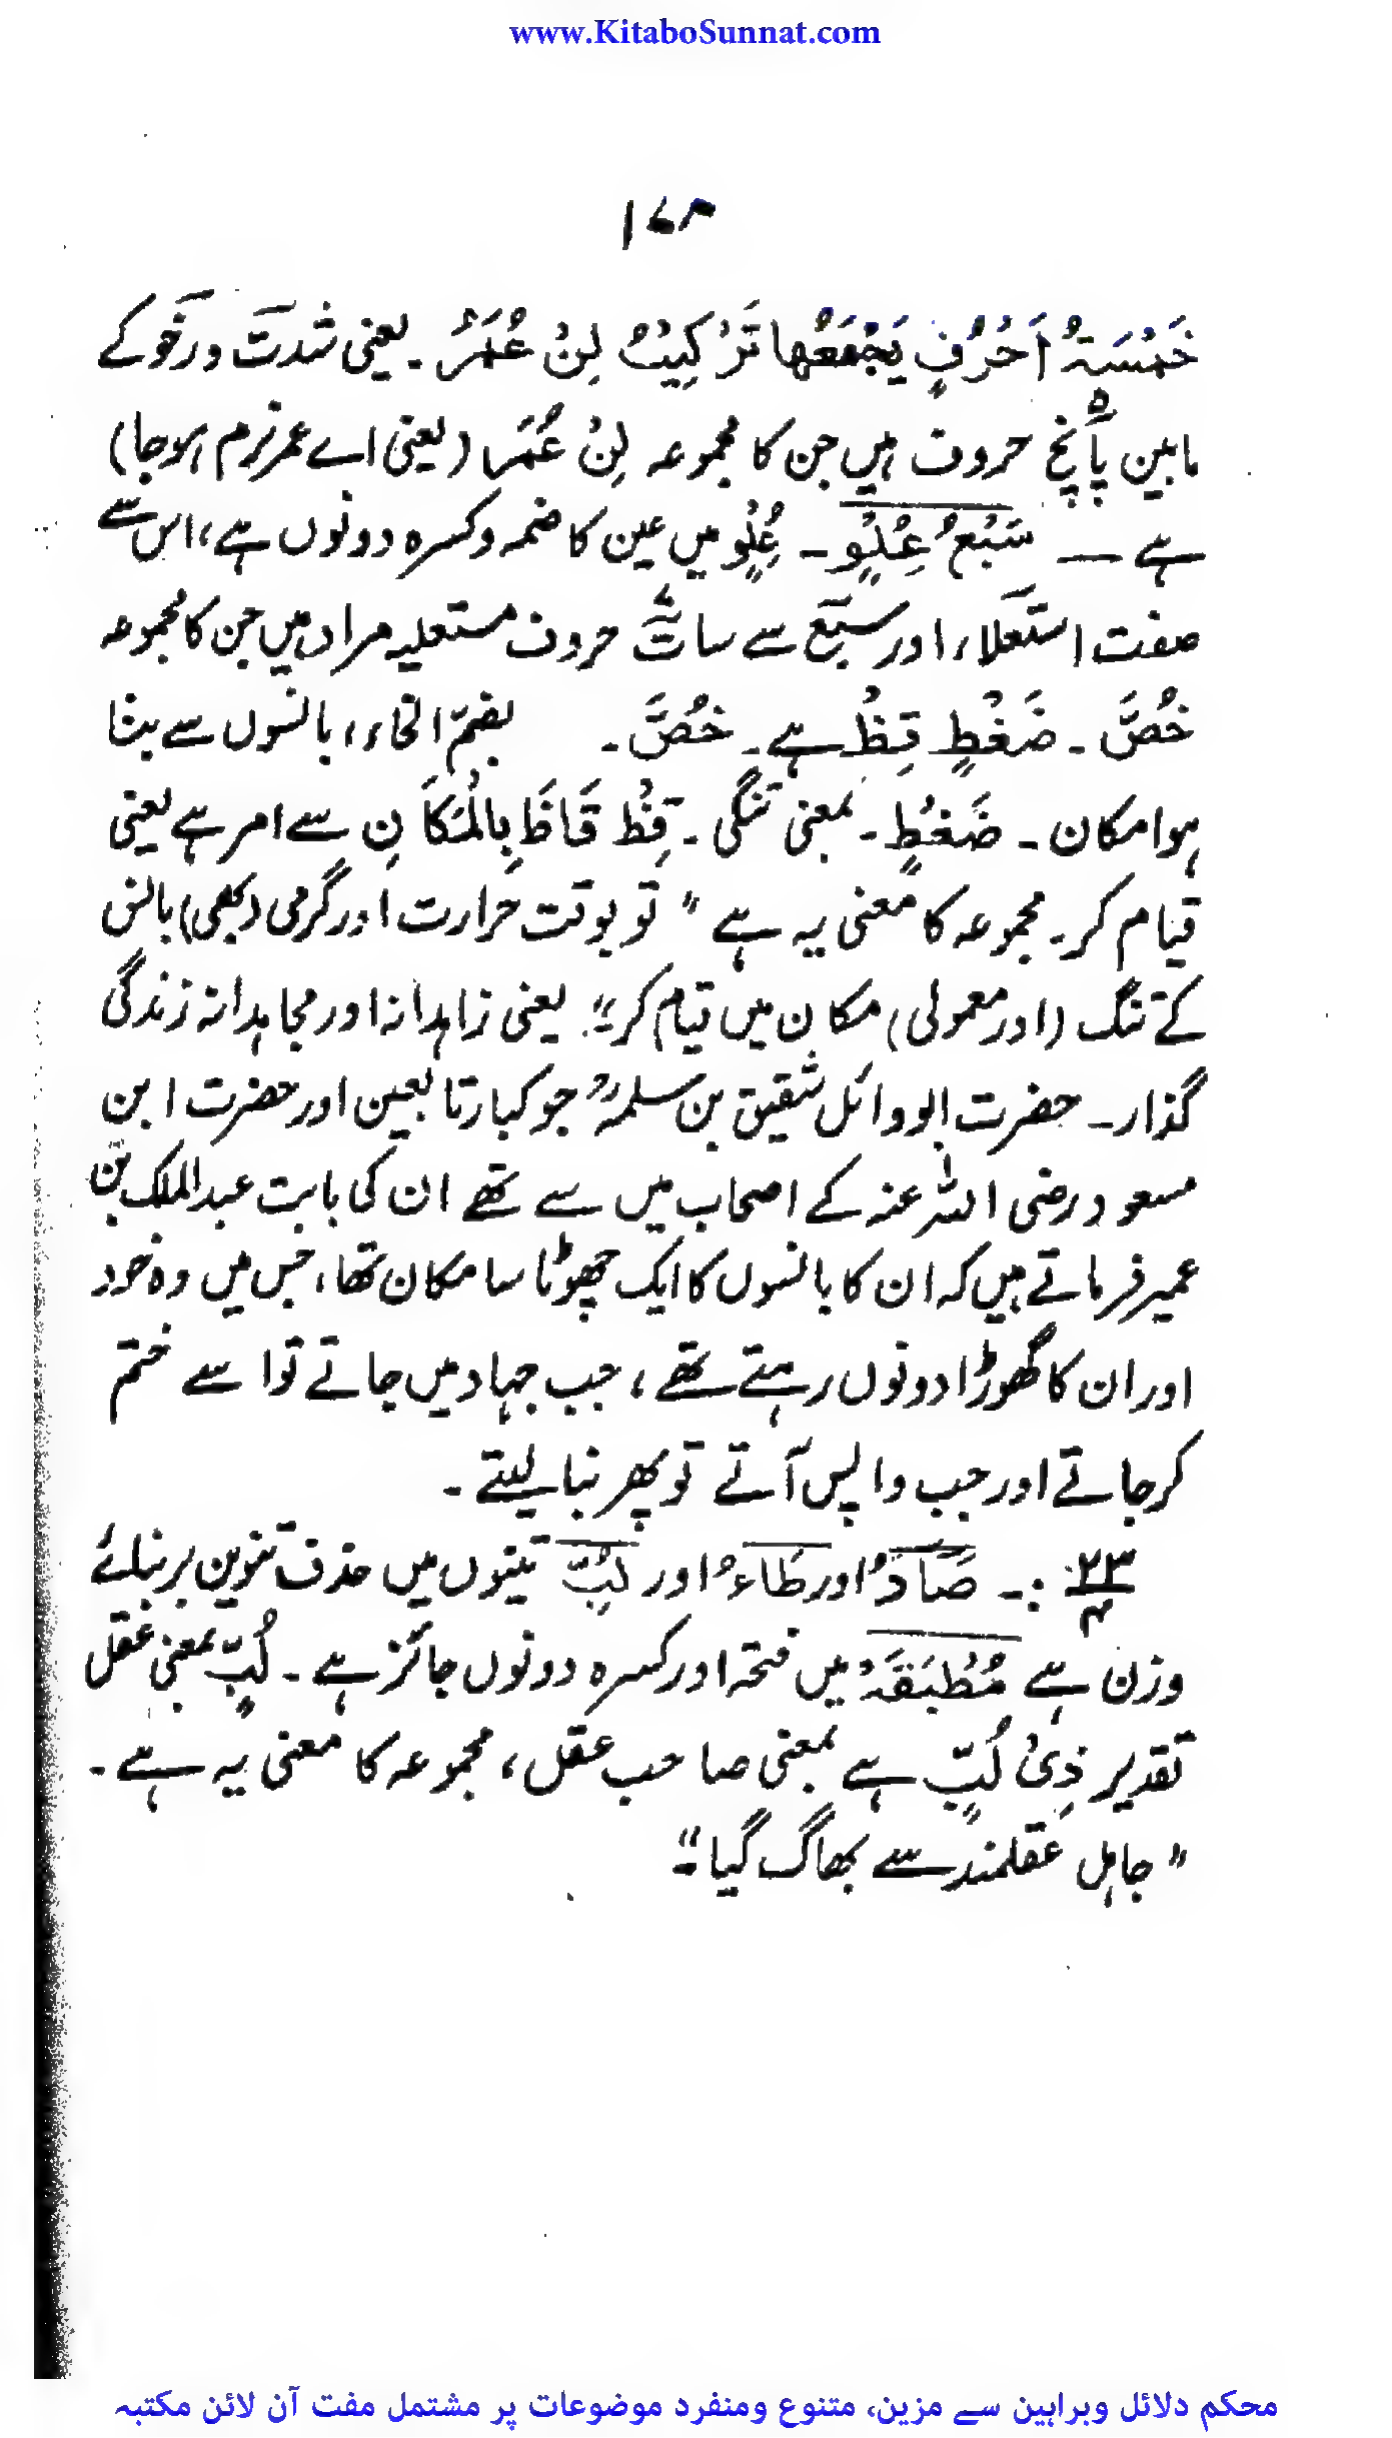 www.KitaboSunnat.com
۱۷۴
خَمْسَۃُ اَحْرُفٍ یَجْمَعُھا تَرْکِیْبُ لِنْ عُمَرُ ۔ یعنی شدت ورخو کے
مابین پانچ حروف ہیں جن کا مجموعہ لِنْ عُمَر (یعنی اے عمر نرم ہوجا)
ہے ـــ سَبْعُ عُِلْوٍ ۔ عُِلْوٍ میں عین کا ضمہ وکسرہ دونوں ہے، اس سے
صفت استعلاء، اور سبع سے سات حروف مستعلیہ مراد ہیں جن کا مجموعہ
خُصَّ ۔ ضَغْطٍ قِظْ ہے۔ خُصَّ ۔ بضمّ الخاء، بانسوں سے بنا
ہوا مکان ۔ ضَغْطٍ ۔ بمعنی تنگی ۔ قِظْ قَاظَ بِالْمَکَانِ سے امر ہے یعنی
قیام کر۔ مجموعہ کا معنی یہ ہے " تو بوقت حرارت اور گرمی (بھی) بانس
کے تنگ (اور معمولی) مکان میں قیام کر"۔ یعنی زاہدانہ اور مجاہدانہ زندگی
گذار۔ حضرت ابو وائل شقیق بن سلمہؒ جو کبار تابعین اور حضرت ابن
مسعود رضی اللہ عنہ کے اصحاب میں سے تھے ان کی بابت عبدالملک بن
عمیر فرماتے ہیں کہ ان کا بانسوں کا ایک چھوٹا سا مکان تھا، جس میں وہ خود
اور ان کا گھوڑا دونوں رہتے تھے، جب جہاد میں جاتے تو اسے ختم
کرجاتے اور جب واپس آتے تو پھر بنا لیتے ۔
۲۳/۴ :۔ صَادُ اور طَاءُ اور لُبِّ تینوں میں حذف تنوین بر بنائے
وزن ہے مُطْبَقَہْ میں فتحہ اور کسرہ دونوں جائز ہے ۔ لُبٍّ بمعنی عقل
تقدیر ذِیْ لُبٍّ ہے بمعنی صاحب عقل، مجموعہ کا معنی یہ ہے ۔
"جاہل عقلمند سے بھاگ گیا"۔
محکم دلائل وبراہین سے مزین، متنوع ومنفرد موضوعات پر مشتمل مفت آن لائن مکتبہ